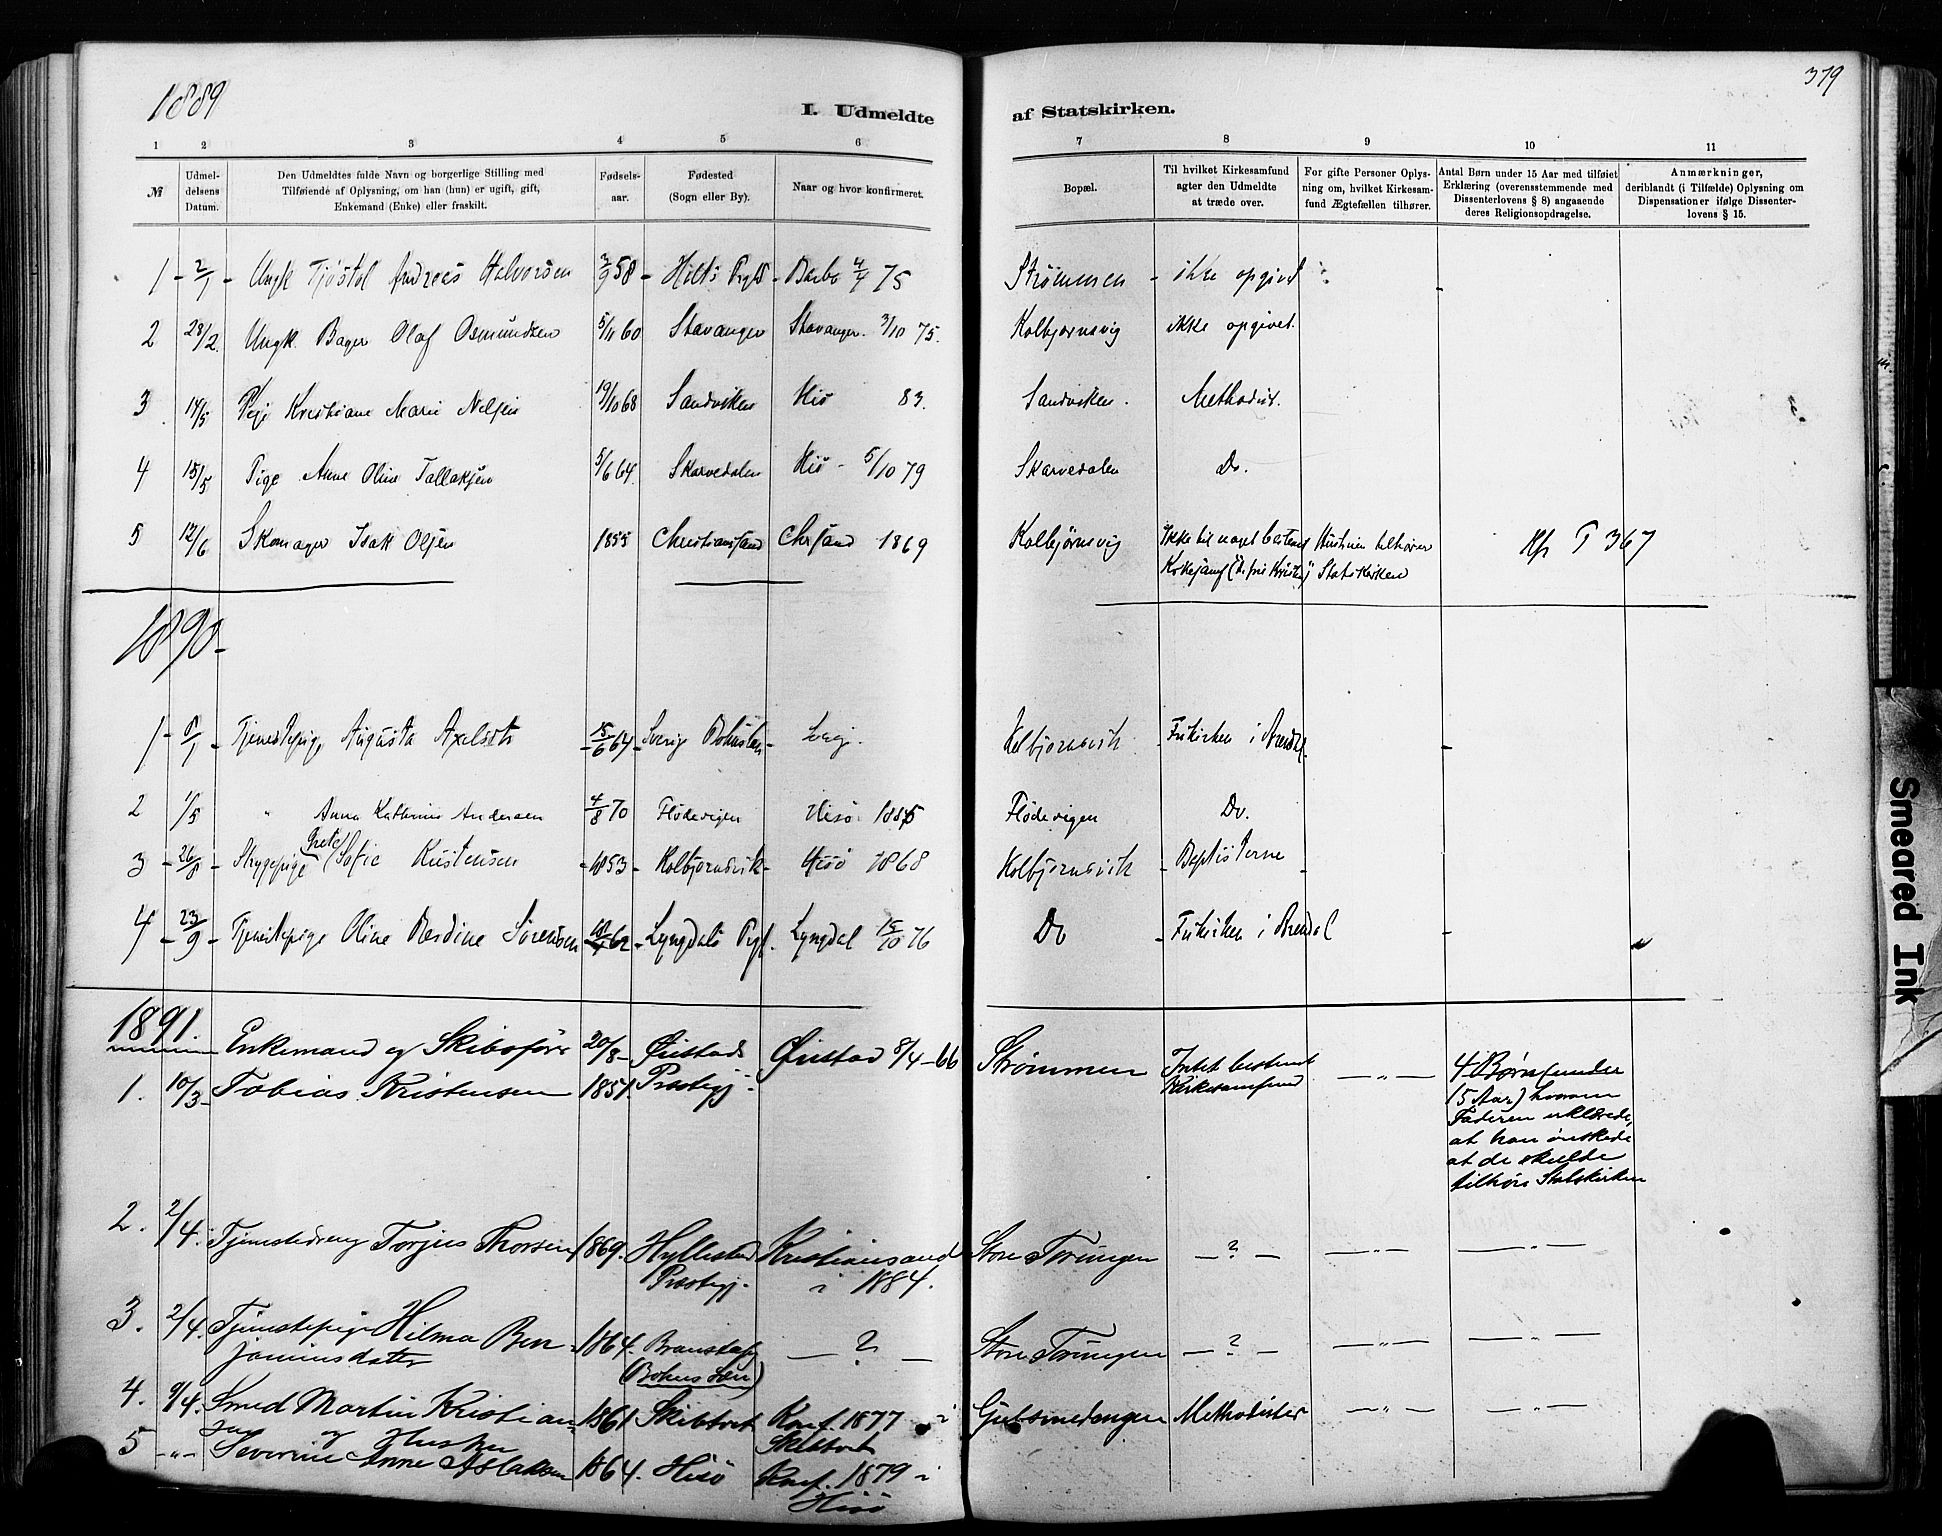 1889
379
I. Udmeldte af Statskirken.
1 2 3 4 5 6 7 8 9 10 11
№
Udmeldelsens Datum.
Den Udmeldtes fulde Navn og borgerlige Stilling med
Tilføiende af Oplysning, om han (hun) er ugift, gift,
Enkemand (Enke) eller fraskilt.
Fødselsaar.
Fødested
(Sogn eller By).
Naar og hvor konfirmeret.
Bopæl.
Til hvilket Kirkesamfund
agter den Udmeldte
at træde over.
For gifte Personer Oplysning om, hvilket Kirkesamfund Ægtefællen tilhører.
Antal Børn under 15 Aar med tilføiet
Erklæring (overensstemmende med
Dissenterlovens § 8) angaaende
deres Religionsopdragelse.
Anmærkninger,
deriblandt (i Tilfælde) Oplysning om
Dispensationer ifølge Dissenterlovens § 15.
1 - 2/1 - Ungk Tjøstol Andreas Halvorsen 58 - Barbo 75 Strømmen - ikke opgivet
2 28/2. Ungk. Bager Olaf Osmundsen 5/11 60 Stavanger Stavanger. 3/10 75. Kolbjørnsvig ikke opgivet.
3 14/5 Pige Kristiane Marie Nilsen 19/10 68 Sandviken Hisø 83. Sandviken. Methodist.
4 15/5 Pige Anne Oline Tallaksen 5/6 64. Skarvedalen Hisø - 5/10 79 Skarvedalen Do.
5 12/6 Skomager Isak Olsen 1855 Christianssand Chrsand 1869 Kolbjørnsvig Ikke til noget bestemt Hustruen tilhører 367
Statskirken
1890 -
1 - Tjenestepige Augusta Axelsdtr 64 - Sverige Bohuslän - Sverig. Kolbjørnsvik Frikirken i Arendal.
2 1/5 " Anna Kathrine Andersen 4/8 70 Flødevigen Hisø 1885 Flødevigen Do.
3 - 26/8 - Grete Sofie Kristensen - 1853 - Kolbjørnsvik - Hisø 1868 Kolbjørnsvik - Baptisterne
4 - 23/9 - Tjenestepige Oline Berdine Sørensen 62 - Lyngdals Pgj. Lyngdal 15/10 76 Do - Frikirken i Arendal
1891.
Enkemand og Skibsfører 20/8 - Øiestads Øiestad 8/4 - 66 Strømmen Intet bestemt — " — 4 Børn (under
1. 10/3 - Tobias Kristensen 1851. Præstegj. Kirkesamfund 15 Aar) hvorom
Faderen erklærede,
at han ønskede
at de skulde
tilhøre Statskirken
2. 2/4. Tjenestedreng Torjus Thorsen 1869. Hyllestad Kristianssand Store Torungen — ? — — " — — " —
Præstegj. i 1884.
3. 2/4. Tjenestepige Hilma Ben 1864. — ? — Store Torungen — ? — — " — — " —
jaminsdatter (Bohus Län)
4. 9/4. Smed Martin Kristian 1861 Skibtvet Konf. 1877 i Gulsmedengen Methodister — " — — " —
og Hustru Skibtvet
5 - " - Severine Anne Aslaksen 1864. Hisø Konf. 1879 i
Hisø
Smeared Ink